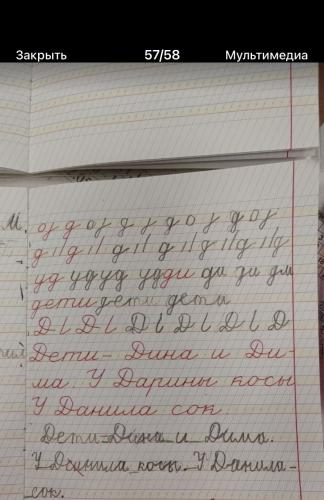 Закрыть 57/58 Мультимедиа
М.
д д
уд удуд удуди ди
дети дети дети
Д Д Д Д Д Д
Дети - Дина и Ди-
ма. У Дарины косы
У Данила сок.
Дети-Дина и Дима.
У Данила косы. У Данила-
сок.